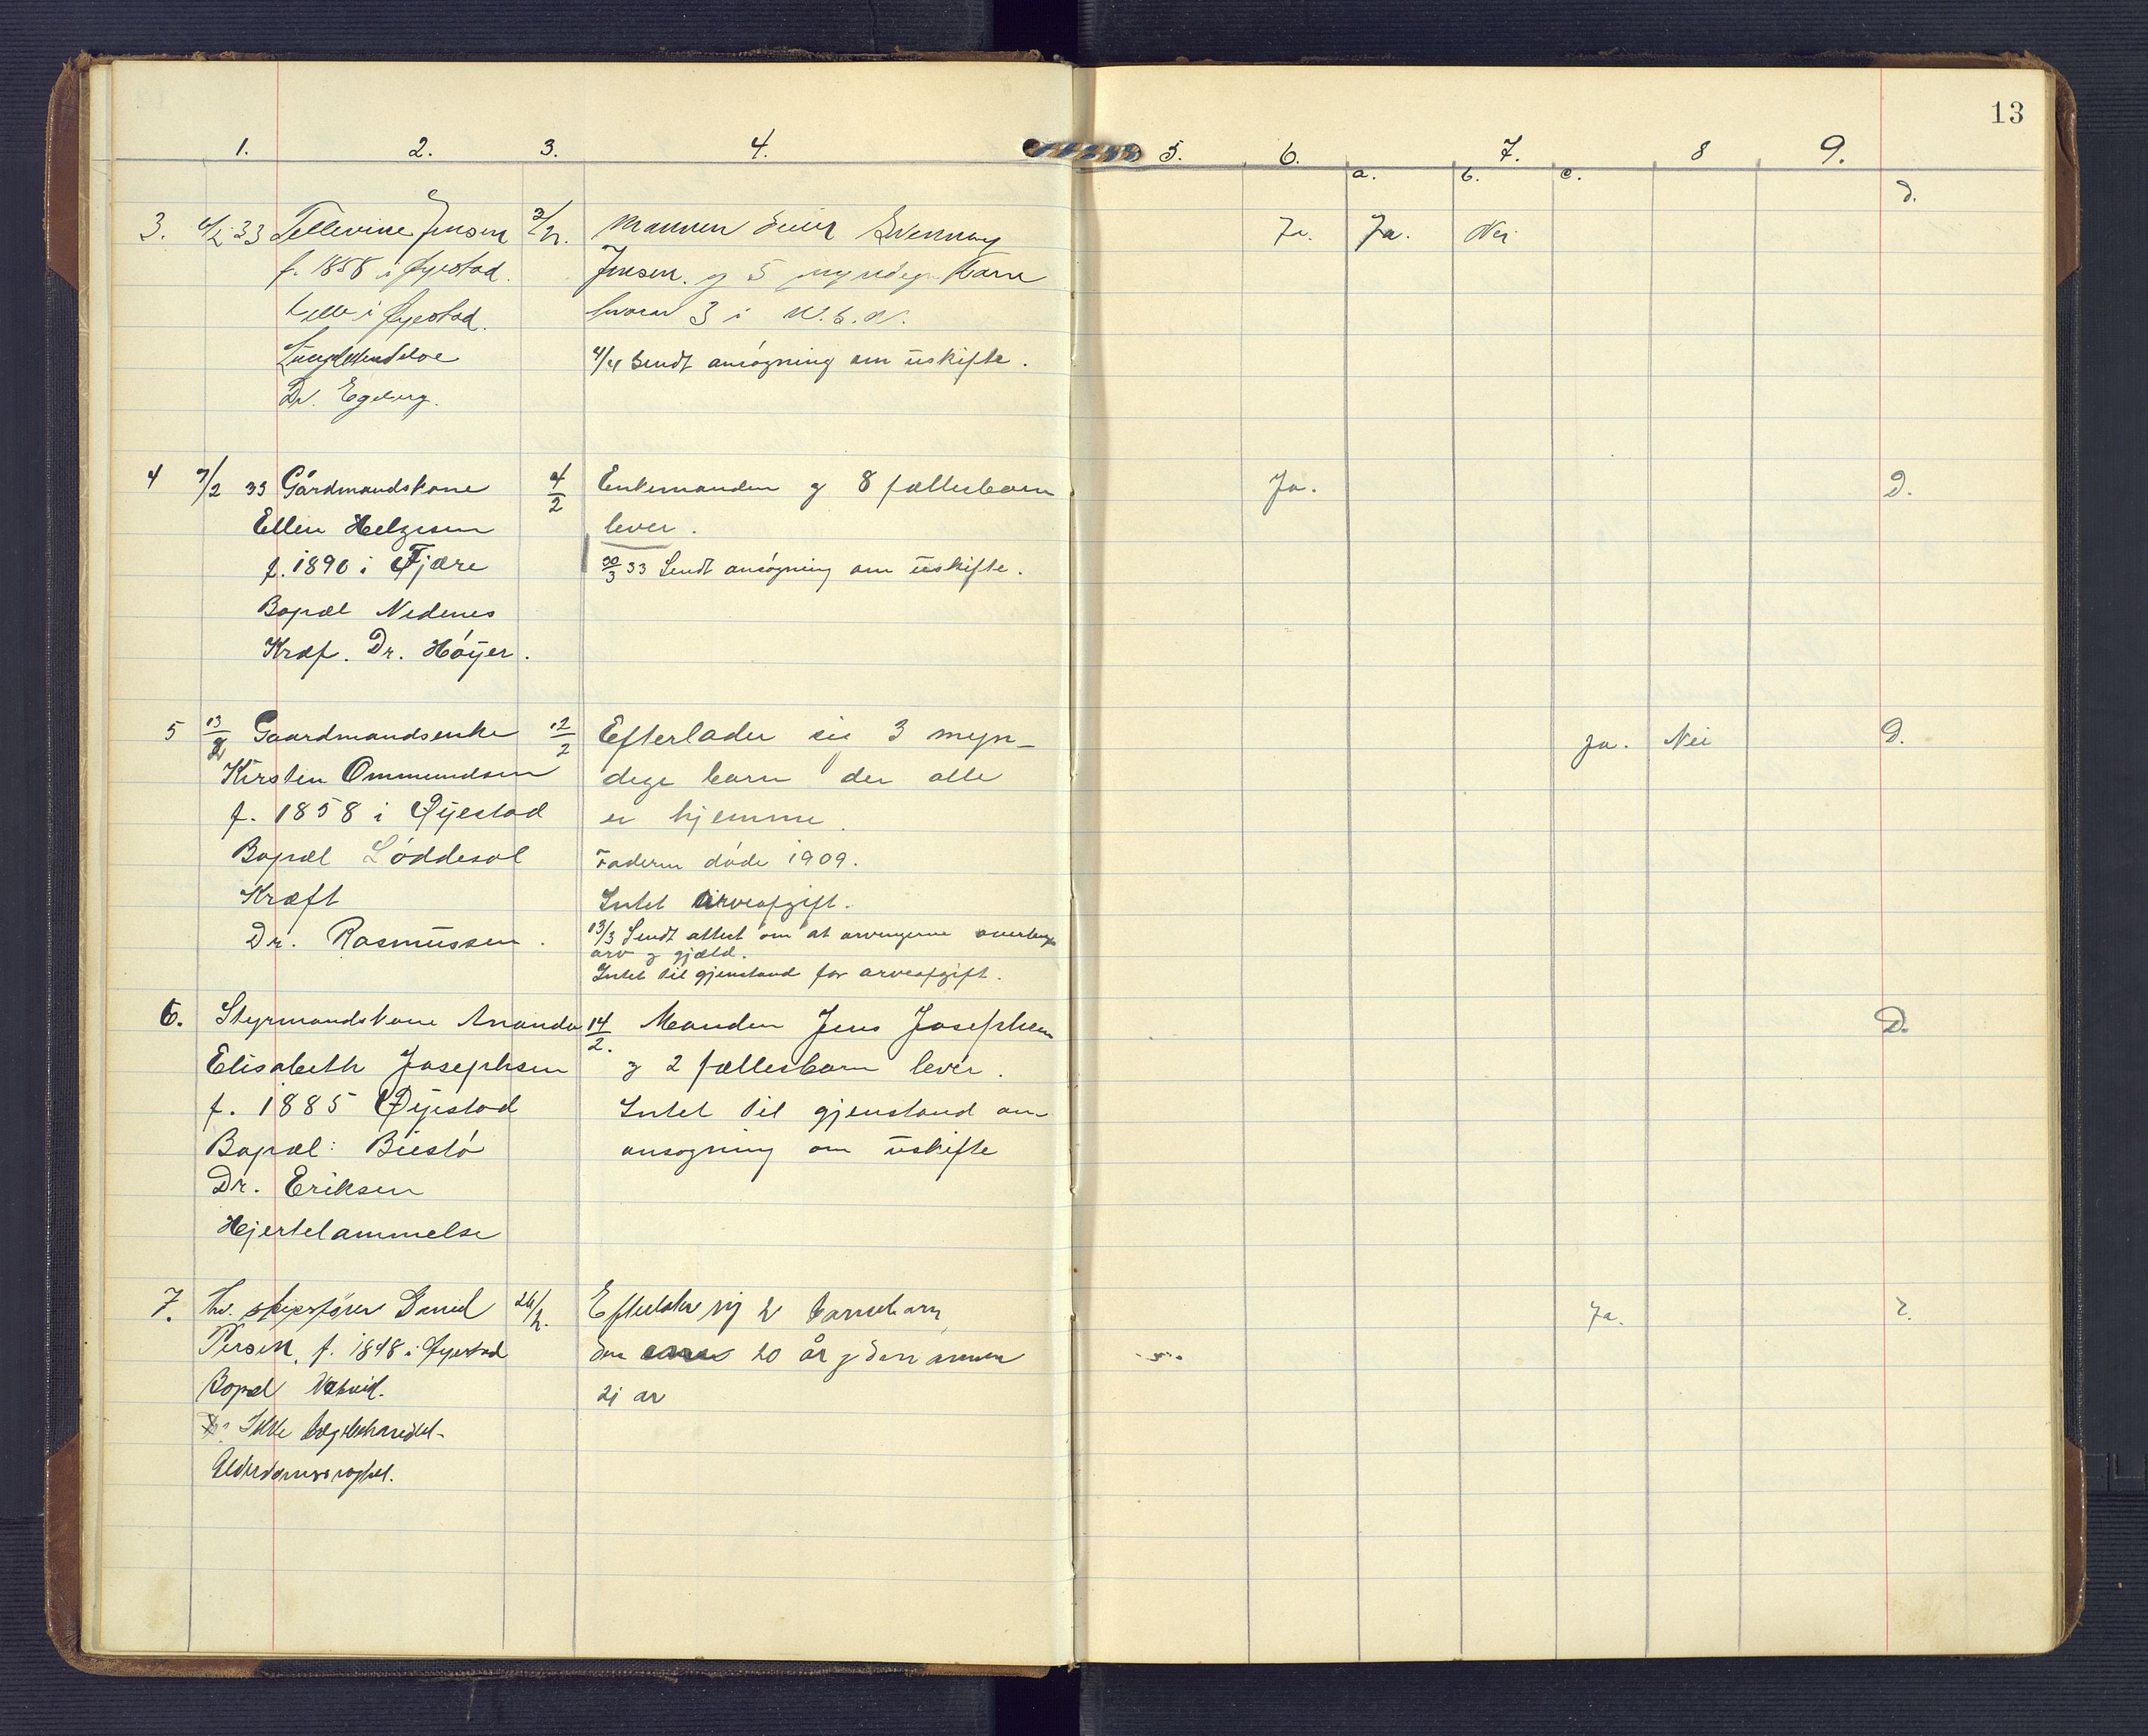 13
1. 2. 3. 4. 5. 6. 7. 8 9.
a. b. c.
3. 4/2 33 Tellevine Jensen 3/2. Mannen Ja. Ja. Nei D.
f. 1858 i Øyestad. Jensen. og 5 myndige barn
i Øyestad. hvorav 3 i
Lungebetendelse 4/4 Sendt ansøgning om uskifte.
Dr. Egeberg.
4 7/2 33 Gårdmandskone 4/2 Enkemanden og 8 fællesbarn Ja. D.
Ellen Helgesen lever.
f. 1890 i Fjære 30/3 33 Sendt ansøgning om uskifte.
Bopæl Nedenes
Kræf. Dr. Høyer.
5 13/2 Gaardmandsenke 12/2 Efterlader sig 3 myn- Ja. Nei D.
Kirsten Ommundsen dige barn der alle
f. 1858 i Øyestad er hjemme.
Bopæl Løddesøl Faderen døde 1909.
Kræft Intet arveafgift.
Dr. Rasmussen. 13/3 Sendt attest om at arvingerne overtager
arv og gjæld.
Intet til gjenstand for arveafgift.
6. Styrmandskone Ananda 14/2. Manden Jens Josephsen D.
Elisabeth Josephsen og 2 fællesbarn lever.
f. 1885 Øyestad Intet til gjenstand om
Bopæl: Biestø ansøgning om uskifte
Dr. Eriksen
Hjertelammelse
7. fhv. skipsfører 26/2. Efterlater sig 2 barnebarn, Ja.
f. 1848 i Øyestad den ene 20 år og den annen
Bopæl 21 år
Ikke lægebehandlet.
Alderdomssvaghet.